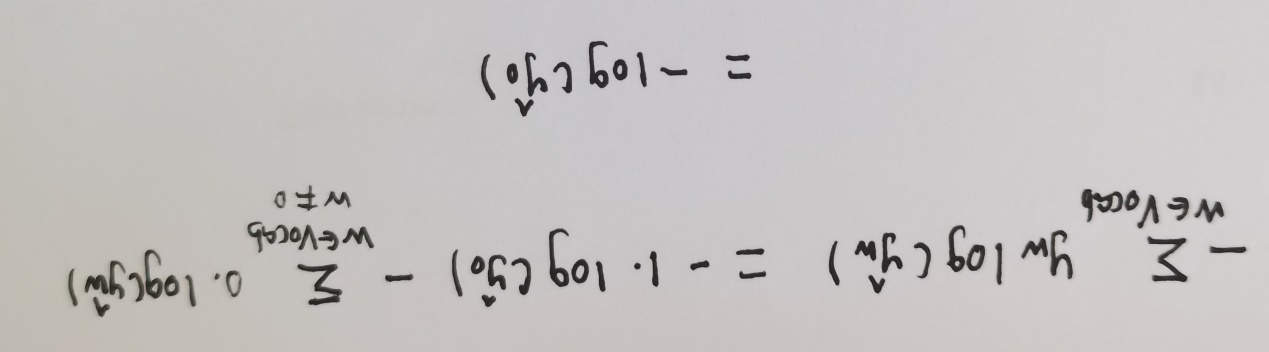 - Σ_{w∈Vocab} y_w log(ŷ_w) = - 1 · log(ŷ_o) - Σ_{w∈Vocab, w≠o} 0 · log(ŷ_w)
= - log(ŷ_o)